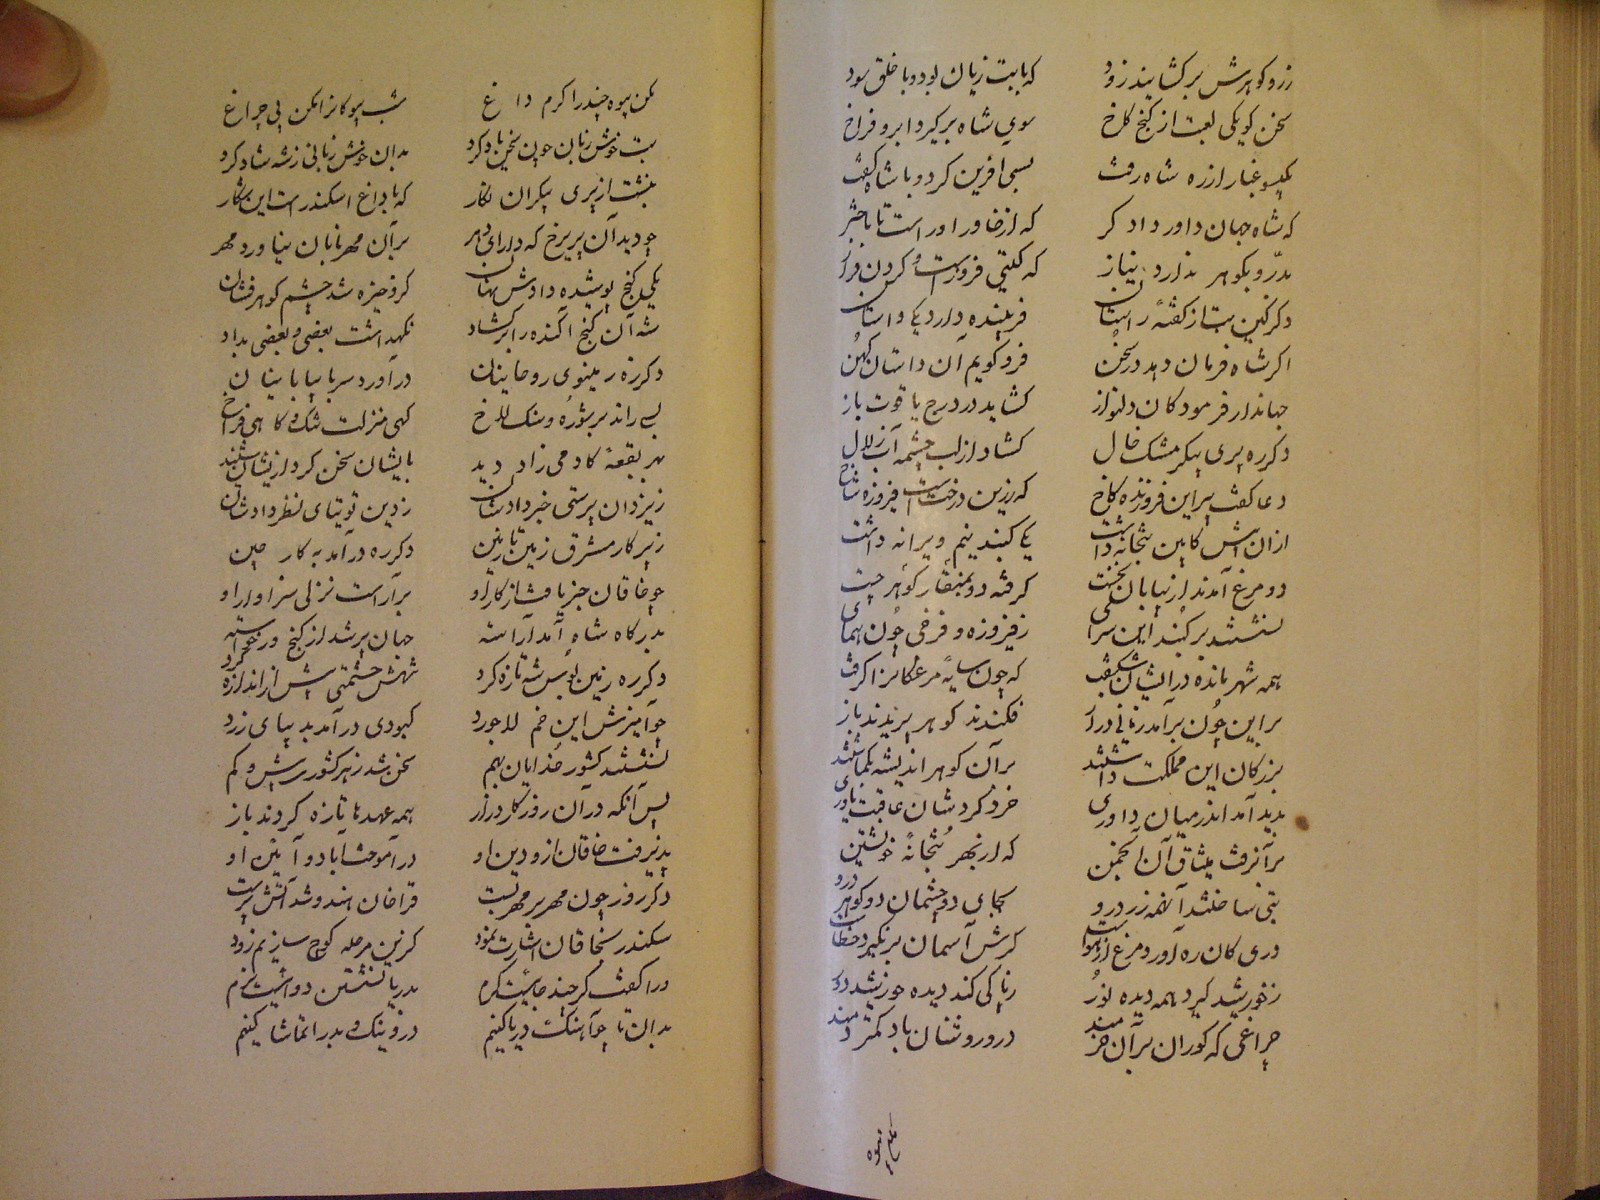 زر و کوهرش برکشایند زود که بابت زیان بود و با خلق سود
سخن کو یکی لعبت از کنج کاخ سوی شاه برکیرد ابرو فراخ
بکیسو غبار از ره شاه رفت بسی افرین کرد و با شاه کفت
که شاه جهان داور دادکر که از خاور او راست تا باختر
بدرّ و بکوهر ندارد نیاز که کیتی فروزست و کردن فراز
دکر کین بت از کفتهٔ راستان فریبنده دارد یکی داستان
اکر شاه فرمان دهد در سخن فرو کویم آن داستان کهن
جهاندار فرمود کان دلنواز کشاید در درج یاقوت باز
دکر ره پری پیکر مشک خال کشاد از لب چشمه آب زلال
دعا کفت بر این فروزنده کاخ که زرین درخت است فیروزه شاخ
از ان پیش کاین بتخانه داشت یکی کنبد نیم ویرانه داشت
دو مرغ آمدند از بیابان نخست کرفته دو بمنقار کوهر چست
نشستند بر کنبد این سرای ز فیروزه و فرخی چون همای
همه شهر مانده در ایشان شکفت که چون سایهٔ مرغکانرا کرفت
بر این چون برآمد زمانی دراز فکندند کوهر پریدند باز
بزرکان این مملکت داشتند بر آن کوهر اندیشه بکماشتند
پدید آمد اندر میان داوری خرد کردشان عاقبت یاوری
بر آنرفت میثاق آن انجمن که از بهر بتخانهٔ خویشتن
بتی ساختند آنهمه زر درو بجای دو چشمان دو کوهر درو
دری کان ره آورد مرغ از هواست کرش آسمان برنکیرد خطاست
ز خورشید کیرد همه دیده نور ز ما کی کند دیده خورشید دور
چراغی که کوران بر آن خرمند در و روشنان باد کمتر دمند
مکن بیوه چندرا کرم داغ شب بیوکانرا مکن بی چراغ
بت خوش زبان چون سخن یاد کرد بدان خوش زبانی ز شه شاد کرد
نبشت از پری پیکران نکار که با داغ اسکندرست این نکار
چو دید آن پریرخ که دارای دهر بر آن مهربانان نیاورد مهر
یکی کنج پوشیده دادش نشان کزو خیره شد چشم کوهر فشان
شه آن کنج آکنده را برکشاد نکهداشت بعضی و بعضی بداد
دکر ره ز مینوی روحانیان درآورد سر با بیابانیان
بسی راند بر شوره و سنک لاخ کهی منزلت تنک و کاهی فراخ
بهر بقعهٔ کادمی زاد دید بایشان سخن کرد از یشان شنید
ز یزدان پرستی خبر دادشان ز دین توتیای نظر دادشان
ز پرکار مشرق زمین تا زمین دکر ره درآمد به کار چین
چو خاقان خبر یافت از کار او برآراست نزلی سزاوار او
بدرکاه شاه آمد آراسته جهان پر شد از کنج و از خواسته
دکر ره زمین بوس شه تازه کرد شهش حشمتی بیش از اندازه کرد
چو آمیزش این خم لاجورد کبودی درآمد بدیبای زرد
نشستند کشور خدایان بهم سخن شد ز هر کشوری بیش و کم
پس آنکه در آن روزکار دراز همه عهدها تازه کردند باز
پذیرفت خاقان ازو دین او درآموخت آداب و آیین او
دکر روز چون مهر بر مهر بست قراخان هندو شد آتش پرست
سکندر بخاقان اشارت نمود کزین مرحله کوچ سازیم زود
مرا کفت کر چند جاییست کرم بدریا نشستن
بدان تا چو آهنک دریا کنیم در و نیک و بد را تماشا کنیم